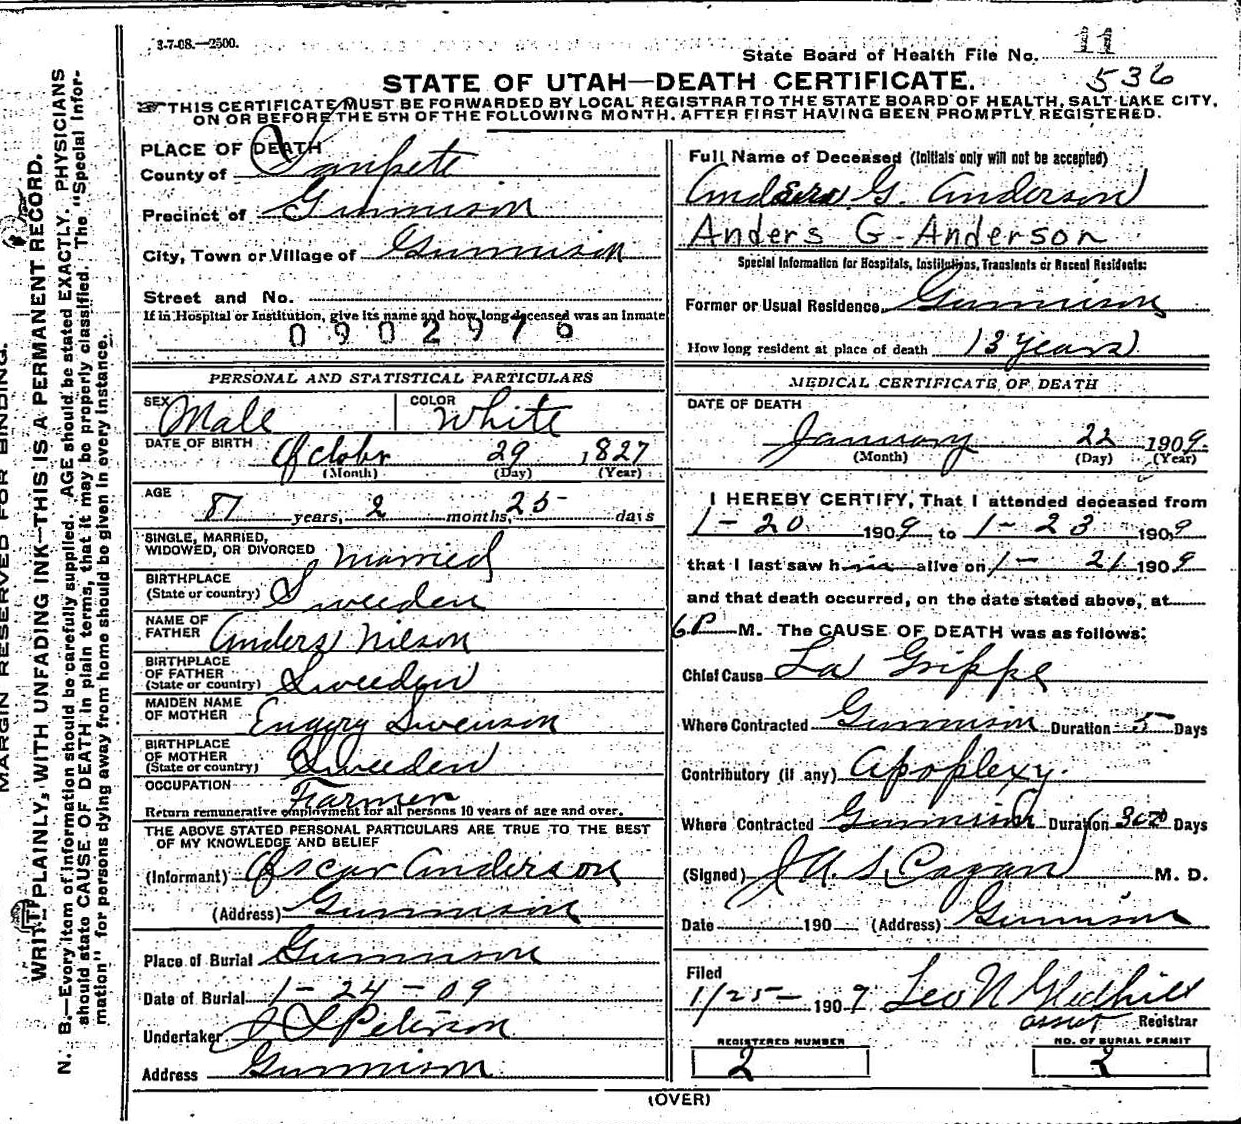 3-7-08.—2500.
State Board of Health File No. 11
536
STATE OF UTAH—DEATH CERTIFICATE.
THIS CERTIFICATE MUST BE FORWARDED BY LOCAL REGISTRAR TO THE STATE BOARD OF HEALTH, SALT LAKE CITY,
ON OR BEFORE THE 5TH OF THE FOLLOWING MONTH, AFTER FIRST HAVING BEEN PROMPTLY REGISTERED.
MARGIN RESERVED FOR BINDING.
WRITE PLAINLY, WITH UNFADING INK—THIS IS A PERMANENT RECORD.
N. B.—Every item of information should be carefully supplied. AGE should be stated EXACTLY. PHYSICIANS
should state CAUSE OF DEATH in plain terms, that it may be properly classified. The "Special Infor-
mation" for persons dying away from home should be given in every instance.
PLACE OF DEATH
County of Sanpete
Precinct of Gunnison
City, Town or Village of Gunnison
Street and No.
If in Hospital or Institution, give its name and how long deceased was an inmate
0902976
PERSONAL AND STATISTICAL PARTICULARS
SEX Male
COLOR White
DATE OF BIRTH October 29 1827
(Month) (Day) (Year)
AGE 81 years, 2 months, 25 days
SINGLE, MARRIED,
WIDOWED, OR DIVORCED Married
BIRTHPLACE
(State or country) Sweeden
NAME OF
FATHER Anders Nilson
BIRTHPLACE
OF FATHER
(State or country) Sweeden
MAIDEN NAME
OF MOTHER Swenson
BIRTHPLACE
OF MOTHER
(State or country) Sweeden
OCCUPATION Farmer
Return remunerative employment for all persons 10 years of age and over.
THE ABOVE STATED PERSONAL PARTICULARS ARE TRUE TO THE BEST
OF MY KNOWLEDGE AND BELIEF
(Informant) Oscar Anderson
(Address) Gunnison
Place of Burial Gunnison
Date of Burial 1-24-09
Undertaker J L Peterson
Address Gunnison
Full Name of Deceased (Initials only will not be accepted)
Anders G. Anderson
Anders G Anderson
Special Information for Hospitals, Institutions, Transients or Recent Residents:
Former or Usual Residence, Gunnison
How long resident at place of death 13 years
MEDICAL CERTIFICATE OF DEATH
DATE OF DEATH
January 22 1909.
(Month) (Day) (Year)
I HEREBY CERTIFY, That I attended deceased from
1-20 1909 to 1-23 1909
that I last saw him alive on 1-21 1909
and that death occurred, on the date stated above, at
6 P M. The CAUSE OF DEATH was as follows:
Chief Cause La Grippe
Where Contracted Gunnison Duration 5 Days
Contributory (if any) Apoplexy.
Where Contracted Gunnison Duration Days
(Signed) M. D.
Date 190 (Address) Gunnison
Filed
1/25- 1909 Leo N Gledhill
asset Registrar
REGISTERED NUMBER
2
NO. OF BURIAL PERMIT
2
(OVER)